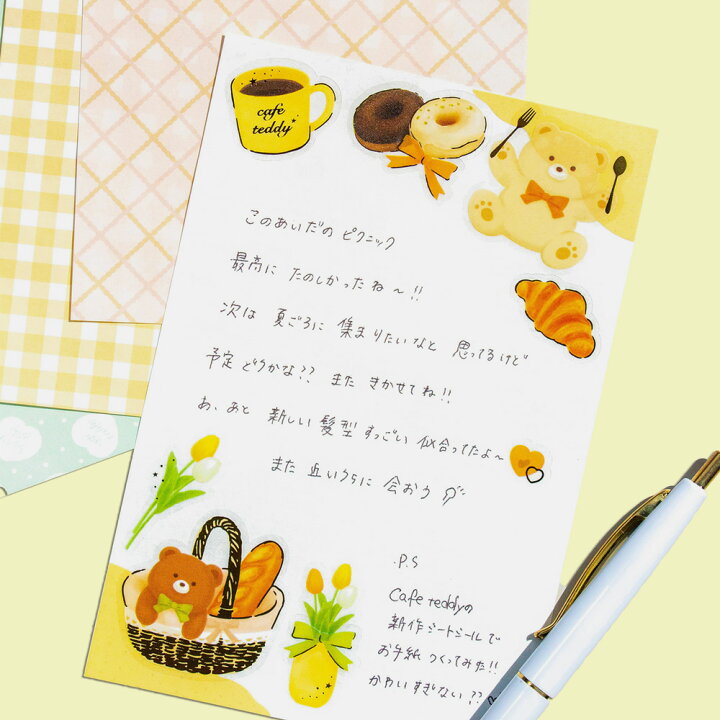 cafe
teddy
このあいだの ピクニック
最高に たのしかったね〜!!
次は 夏ごろに 集まりたいなと 思ってるけど
予定 どうかな?? また きかせてね!!
あ、あと 新しい 髪型 すっごい 似合ってたよ〜
また 近いうちに 会おう
P.S
Cafe teddyの
新作シートシールで
お手紙 つくってみた!!
かわいすぎない??